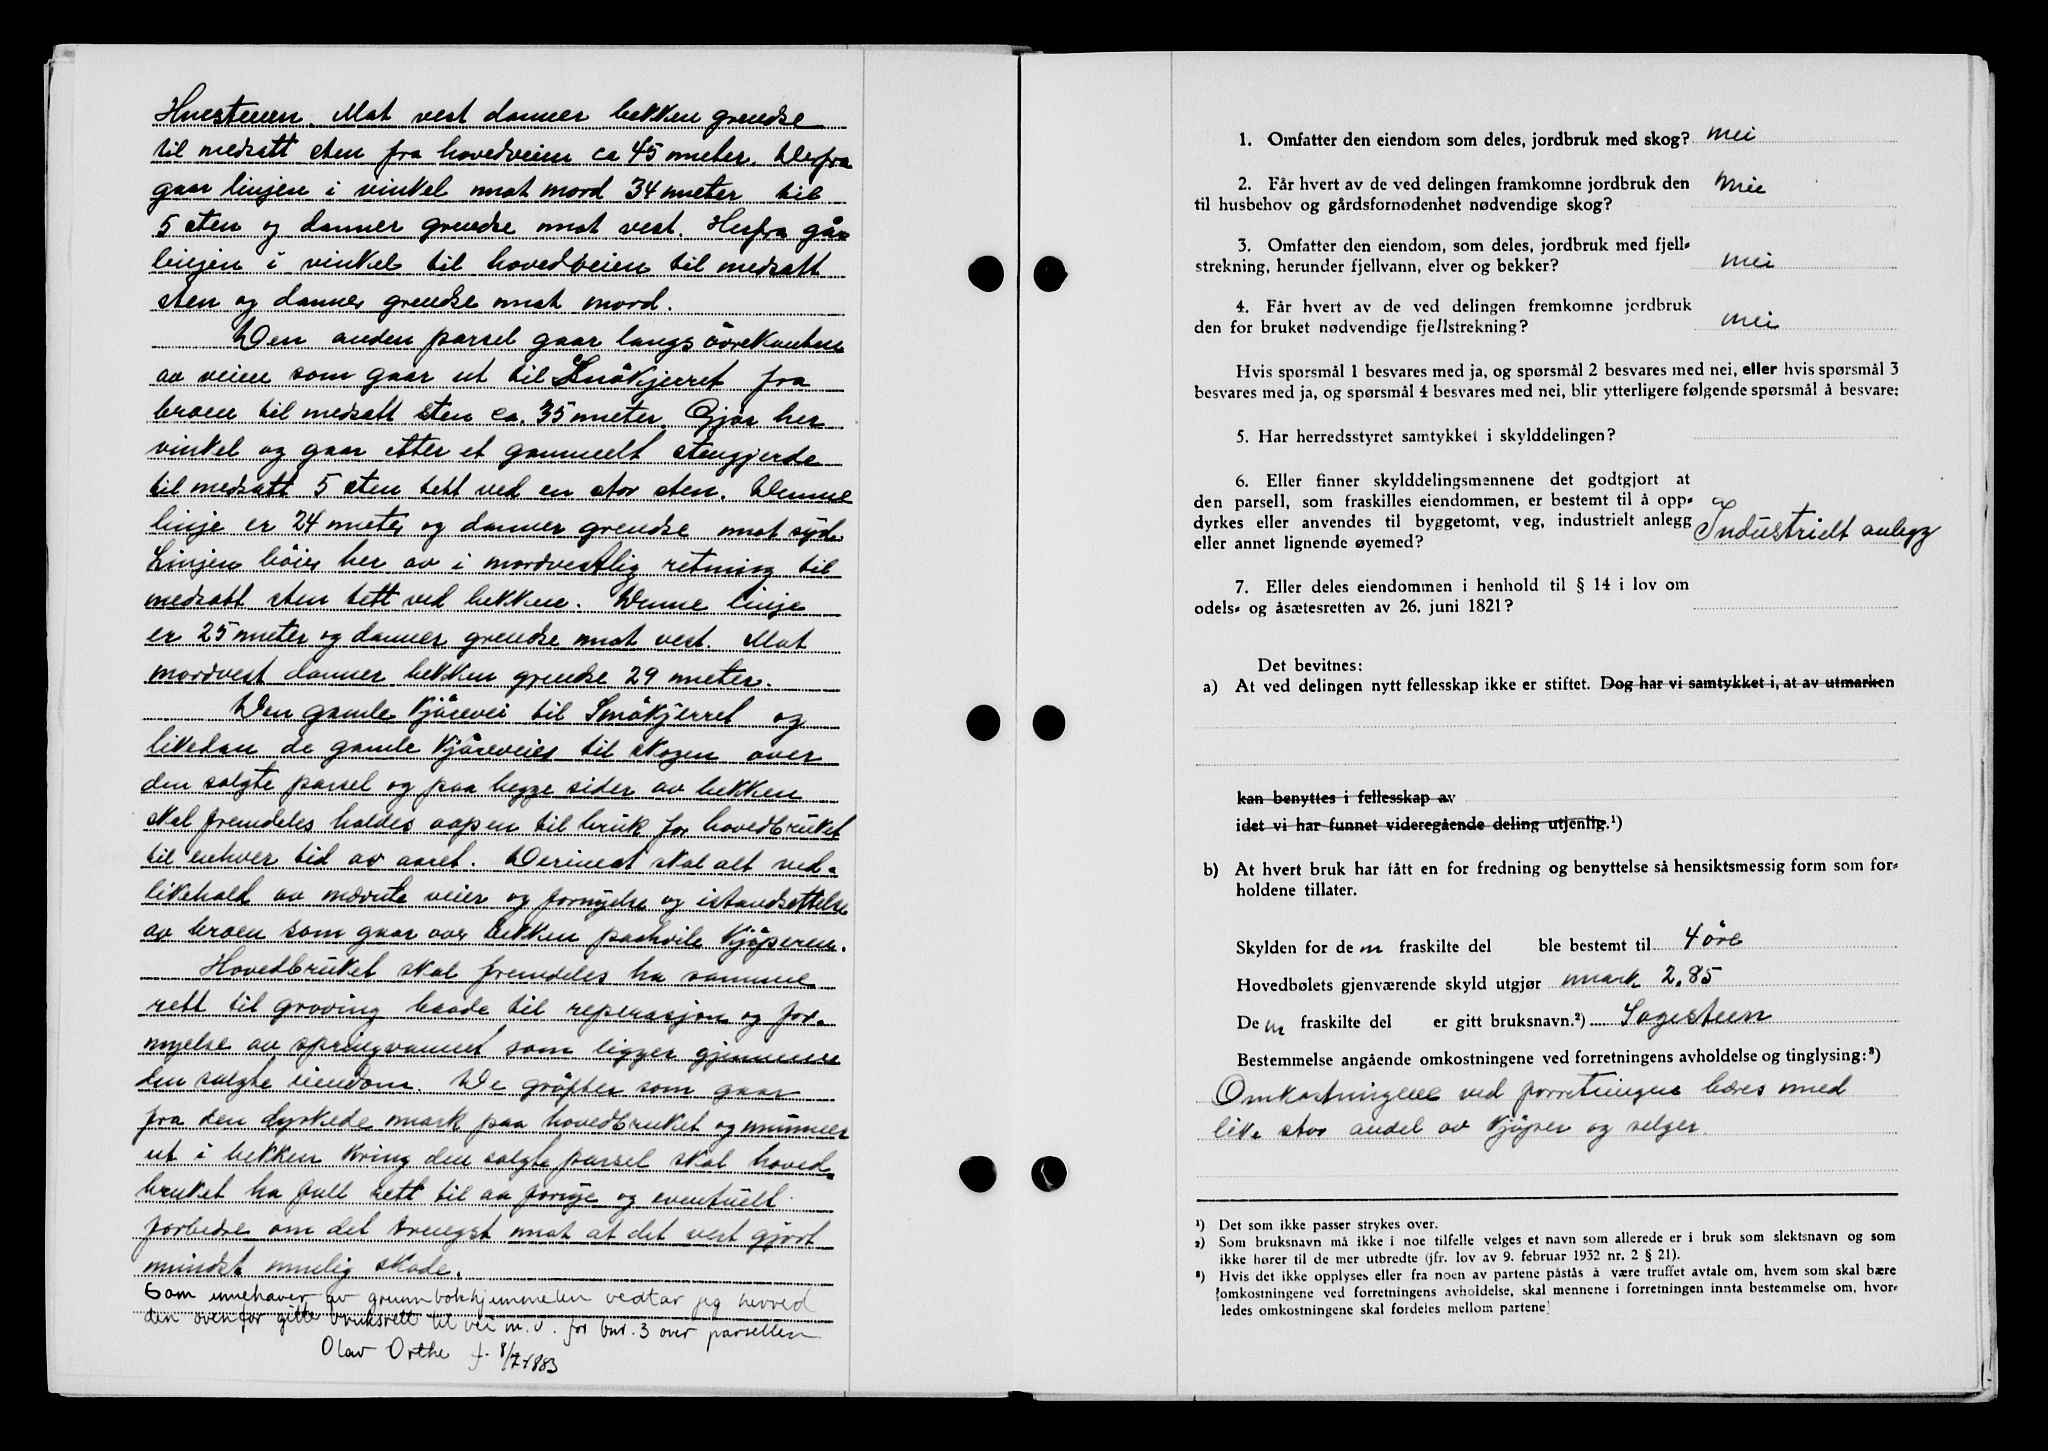 Huesteuen. Mot vest danner bekken grendse
til nedsatt sten fra hovedveien ca 45 meter. Derfra
gaar linjen i vinkel mot nord 34 meter til
5 sten og danner grendse mot vest. Herfra går
linjen i vinkel til hovedveien til nedsatt
sten og danner grendse mot nord.
Den anden parsel gaar langs övrekanten
av veien som gaar ut til Småkjerret fra
broen til nedsatt sten ca. 35 meter. Gjör her
vinkel og gaar efter et gammelt stengjerde
til nedsatt 5 sten tett ved en stor sten. Denne
linje er 24 meter og danner grendse mot syd.
Linjen böier her av i nordvestlig retning til
nedsatt sten tett ved bekken. Denne linje
er 25 meter og danner grendse mot vest. Mot
nordvest danner bekken grendse 29 meter.
Den gamle kjörevei til Småkjerret og
likedan de gamle kjöreveier til skogen over
den solgte parsel og paa begge sider av bekken
skal fremdeles holdes aapen til bruk for hovedbruket
til enhver tid av aaret. Derimot skal alt ved-
likehold av nævnte veier og fornyelse og istandsettelse
av broen som gaar over bekken paahvile kjöperen.
Hovedbruket skal fremdeles ha samme
rett til graving baade til reperasjon og for-
nyelse av springvannet som ligger gjennem
den solgte eiendom. De gröfter som gaar
fra den dyrkede mark paa hovedbruket og munner
ut i bekken kring den solgte parsel skal hoved-
bruket ha full rett til aa fornye og eventuelt
forbedre om det trenges mot at det vert gjort
mindst mulig skade.
Som innehaver av grunnbokhjemmelen vedtar jeg herved
den ovenfor gitte bruksrett til vei m.v. for bnr. 3 over parsellen
Olav Orthe f. 8/7 1883
1. Omfatter den eiendom som deles, jordbruk med skog? nei
2. Får hvert av de ved delingen framkomne jordbruk den
til husbehov og gårdsfornødenhet nødvendige skog? nei
3. Omfatter den eiendom, som deles, jordbruk med fjell-
strekning, herunder fjellvann, elver og bekker? nei
4. Får hvert av de ved delingen fremkomne jordbruk
den for bruket nødvendige fjellstrekning? nei
Hvis spørsmål 1 besvares med ja, og spørsmål 2 besvares med nei, eller hvis spørsmål 3
besvares med ja, og spørsmål 4 besvares med nei, blir ytterligere følgende spørsmål å besvare:
5. Har herredsstyret samtykket i skylddelingen?
6. Eller finner skylddelingsmennene det godtgjort at
den parsell, som fraskilles eiendommen, er bestemt til å opp-
dyrkes eller anvendes til byggetomt, veg, industrielt anlegg
eller annet lignende øyemed? Industrielt anlegg
7. Eller deles eiendommen i henhold til § 14 i lov om
odels- og åsætesretten av 26. juni 1821?
Det bevitnes:
a) At ved delingen nytt fellesskap ikke er stiftet. Dog har vi samtykket i, at av utmarken
kan benyttes i fellesskap av
idet vi har funnet videregående deling utjenlig.¹)
b) At hvert bruk har fått en for fredning og benyttelse så hensiktsmessig form som for-
holdene tillater.
Skylden for de n fraskilte del ble bestemt til 4 öre
Hovedbølets gjenværende skyld utgjør mark 2.85
De n fraskilte del er gitt bruksnavn.²) Sagesteen
Bestemmelse angående omkostningene ved forretningens avholdelse og tinglysing:³)
Omkostningene ved forretningen bæres med
like stor andel av kjöper og selger.
¹) Det som ikke passer strykes over.
²) Som bruksnavn må ikke i noe tilfelle velges et navn som allerede er i bruk som slektsnavn og som
ikke hører til de mer utbredte (jfr. lov av 9. februar 1932 nr. 2 § 21).
³) Hvis det ikke opplyses eller fra noen av partene påstås å være truffet avtale om, hvem som skal bære
omkostningene ved forretningens avholdelse, skal mennene i forretningen innta bestemmelse om, hvor-
ledes omkostningene skal fordeles mellom partene.